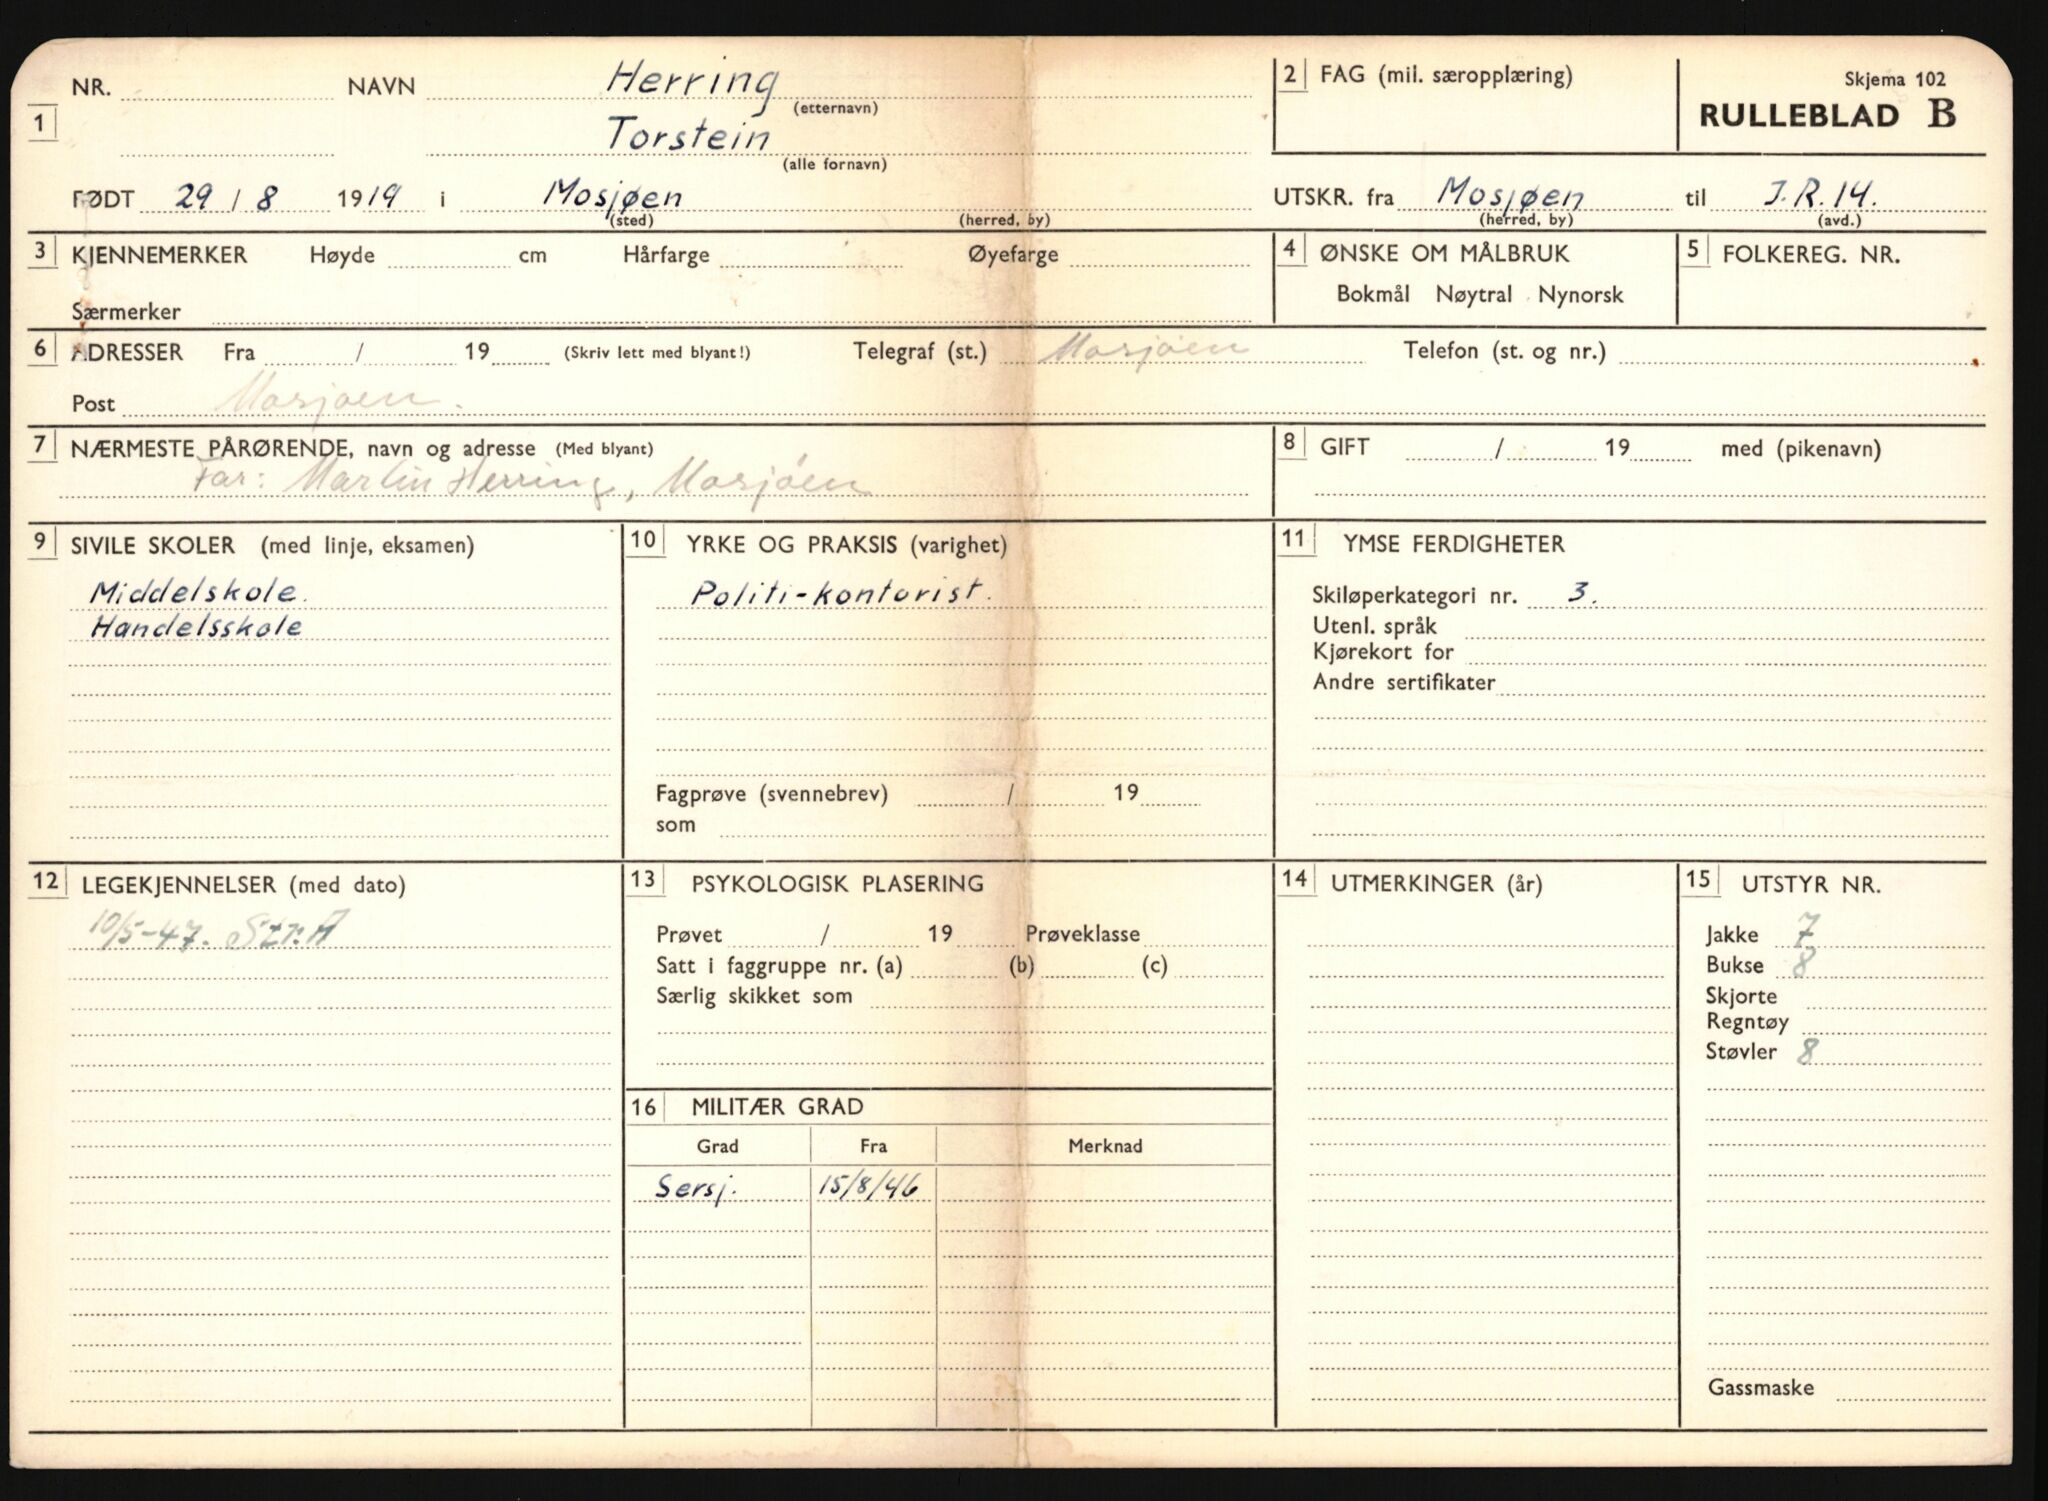 NR. NAVN Herring
(etternavn)
1
Torstein
(alle fornavn)
FØDT 29 / 8 1919 i Mosjøen
(sted) (herred, by)
2 FAG (mil. særopplæring)
Skjema 102
RULLEBLAD B
UTSKR. fra Mosjøen til J.R.14.
(herred, by) (avd.)
3 KJENNEMERKER Høyde cm Hårfarge Øyefarge
Særmerker
4 ØNSKE OM MÅLBRUK
Bokmål Nøytral Nynorsk
5 FOLKEREG. NR.
6 ADRESSER Fra / 19 (Skriv lett med blyant!) Telegraf (st.) Mosjøen Telefon (st. og nr.)
Post Mosjøen.
7 NÆRMESTE PÅRØRENDE, navn og adresse (Med blyant)
Far: Martin Herring, Mosjøen
8 GIFT / 19 med (pikenavn)
9 SIVILE SKOLER (med linje, eksamen)
Middelskole.
Handelsskole
10 YRKE OG PRAKSIS (varighet)
Politi-kontorist.
Fagprøve (svennebrev) / 19
som
11 YMSE FERDIGHETER
Skiløperkategori nr. 3.
Utenl. språk
Kjørekort for
Andre sertifikater
12 LEGEKJENNELSER (med dato)
10/5-47. Str.A
13 PSYKOLOGISK PLASERING
Prøvet / 19 Prøveklasse
Satt i faggruppe nr. (a) (b) (c)
Særlig skikket som
14 UTMERKINGER (år)
15 UTSTYR NR.
Jakke 7
Bukse 8
Skjorte
Regntøy
Støvler 8
Gassmaske
16 MILITÆR GRAD
Grad Fra Merknad
Sersj. 15/8/46